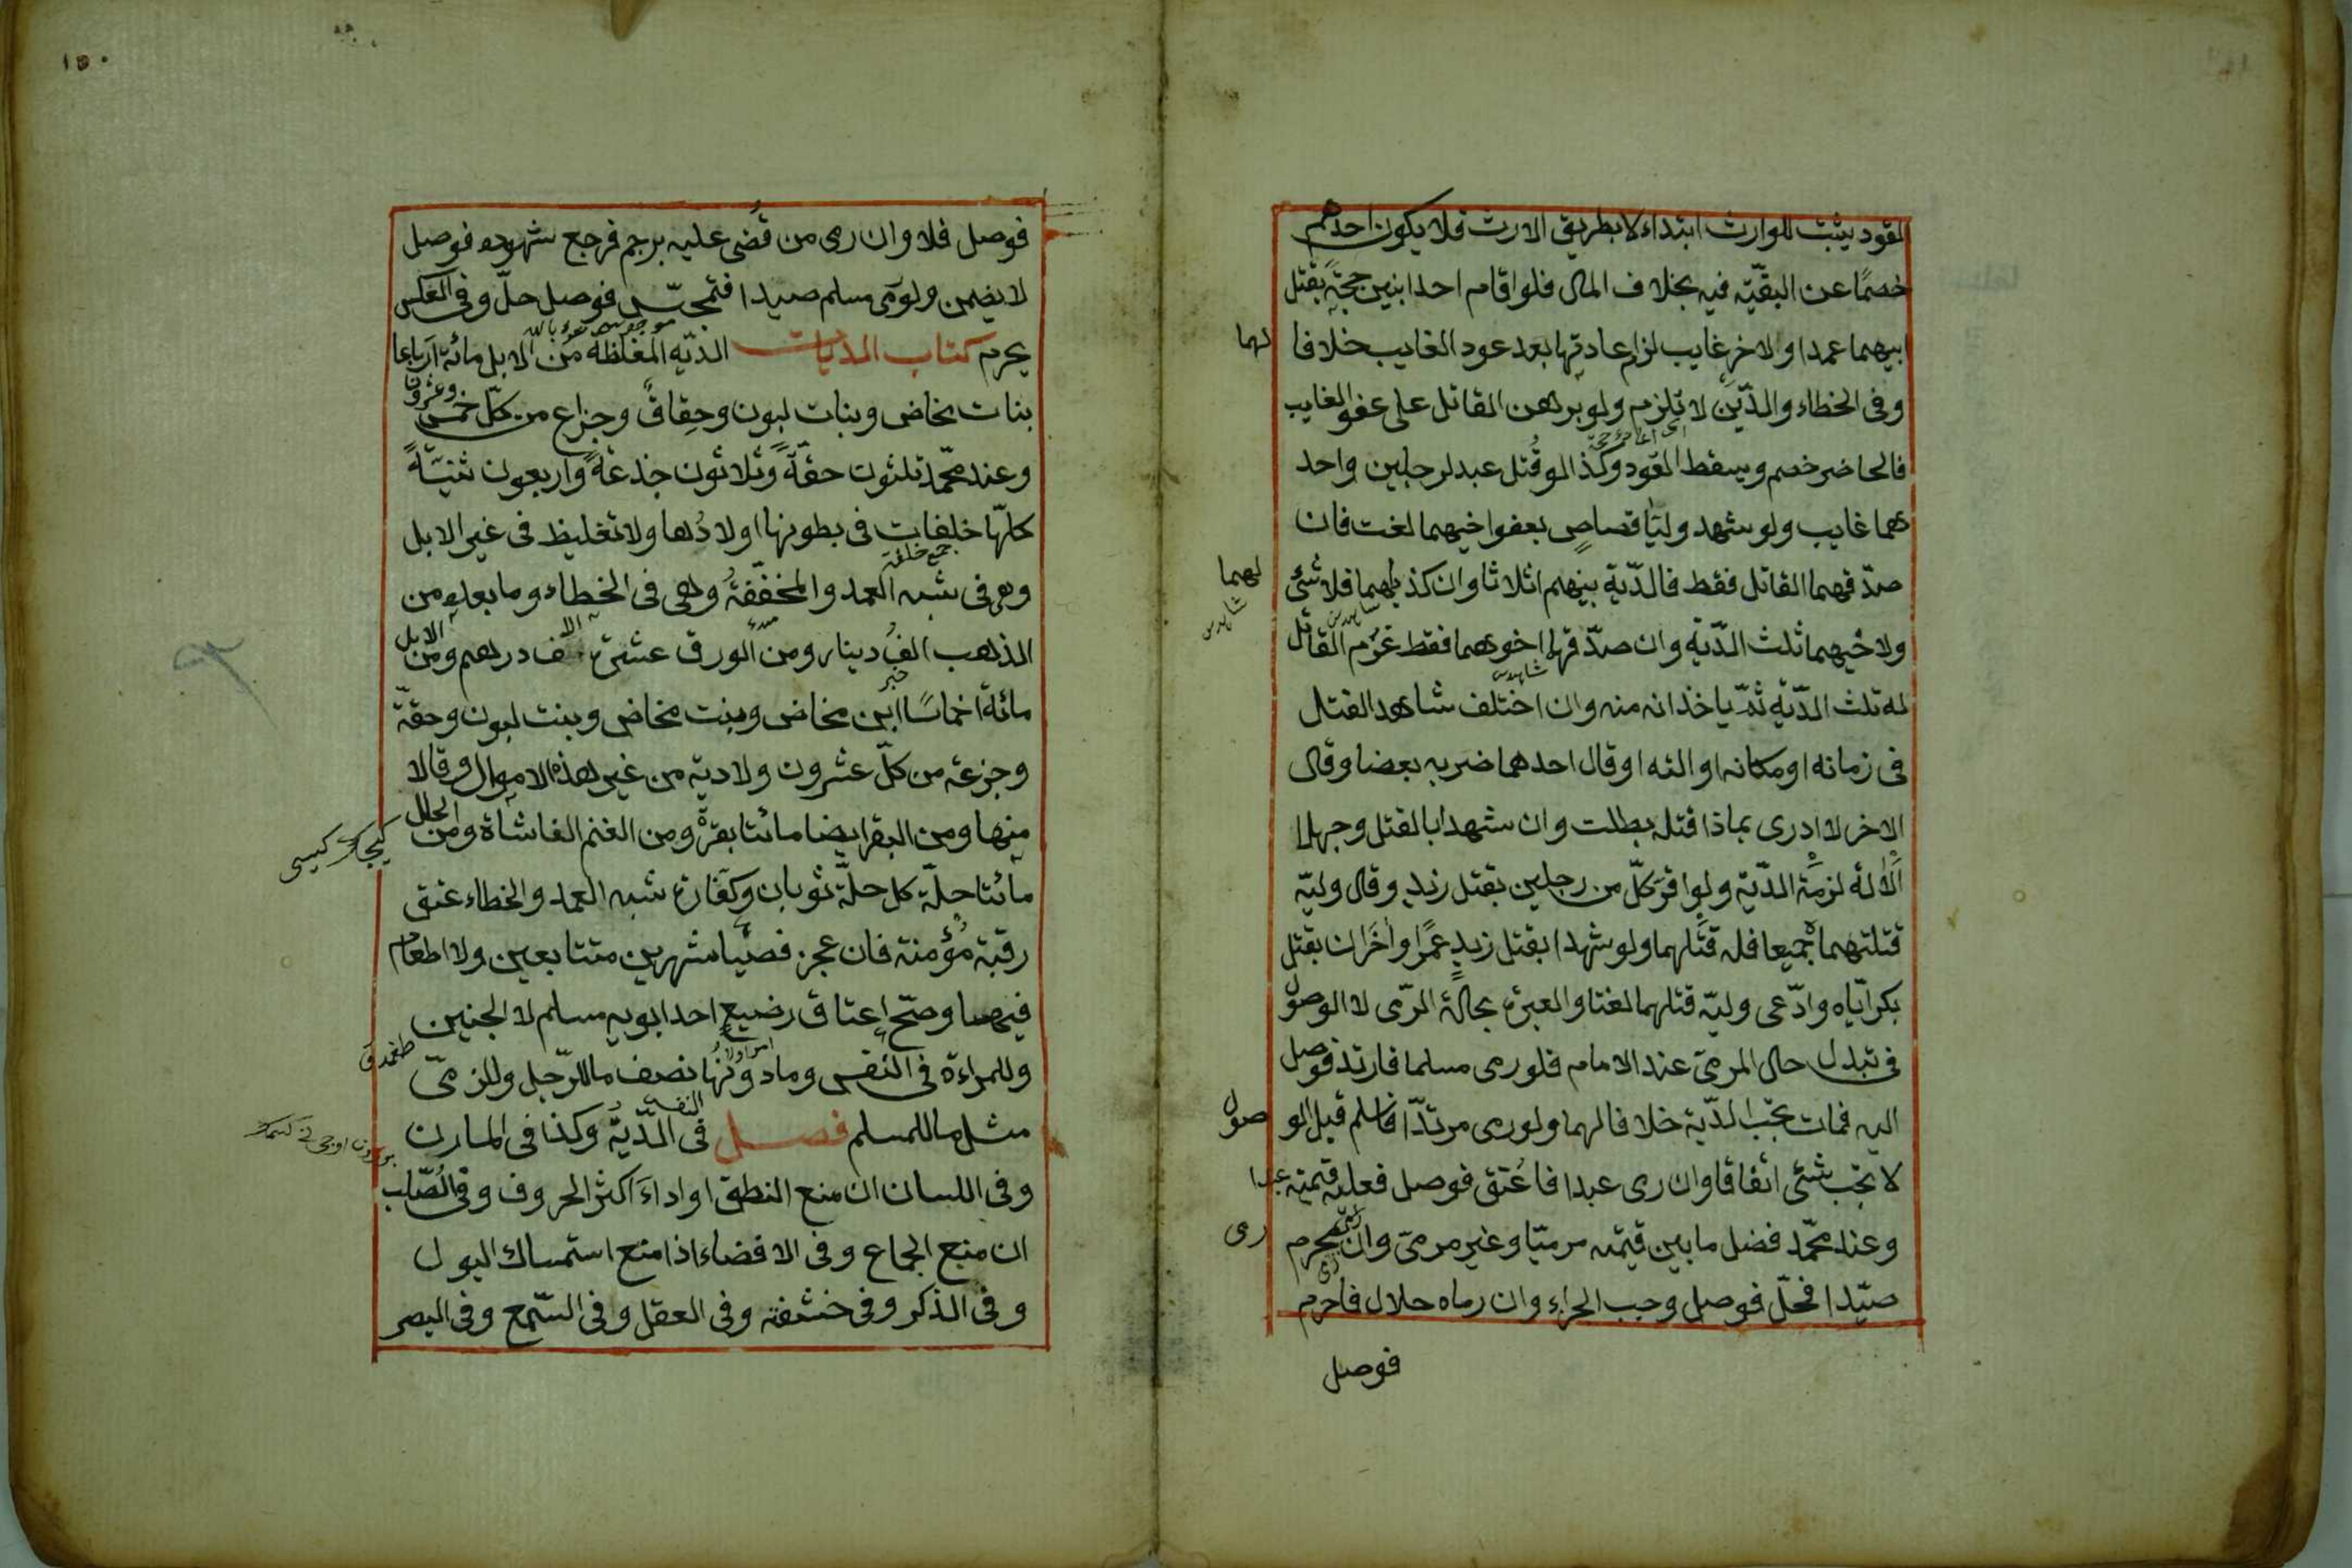 القود يثبت للوارث ابتداء لا بطريق الارث فلا يكون احدهم
خصمًا عن البقيّه فيه بخلاف المال فلو اقام احد ابنين حجّةً بقتل
ابيهما عمدا والاخر غايب لزم اعادتها بعد عود الغايب خلافا لهما
وفى الخطاء والدّين لا تلزم ولو برهن القاتل على عفو الغايب
فالحاضر خصم وسقط القود وكذا لو قُتل عبد لرجلين واحد
هما غايب ولو شهد وليّا قصاصٍ بعفو اخيهما لغت فان
صدّقهما القاتل فقط فالدّية بينهم اثلاثا وان كذبهما فلا شئ لهما
شاهدين
ولاخيهما ثلث الدّية وان صدّقهما اخوهما فقط غرم القاتل
شاهدين
له ثلث الدّية ثمّ ياخذانه منه وان اختلف شاهدا القتل
فى زمانه او مكانه او الته او قال احدهما ضربه بعضا وقال
الاخر لا ادرى بماذا قتله بطلت وان شهدا بالقتل وجهلا
الالة لزمت الدّية ولو اقرّ كلّ من رجلين بقتل زيد وقال وليّه
قتلتهما جميعا فله قتلهما ولو شهدا بقتل زيدٍ عمرًا واخران بقتل
بكر ايّاه وادّعى وليّه قتلهما لغتا والعبرة بحالة الرّمى لا الوصول
فى تبدل حال المرمىّ عند الامام فلو رمى مسلما فارتد فوصل
اليه فمات تجب الدّية خلافا لهما ولو رمى مرتدّا فاسلم قبل الوصول
لا تجب شئ اتفاقا وان رمى عبدا فاعتق فوصل فعليه قيمته عبدا
وعند محمّد فضل ما بين قيمته مرميّا وغير مرمىّ وان محرم رمى
صيّدا فحلّ فوصل وجب الجزاء وان رماه حلال فاحرم
فوصل
١٥٠
فوصل فلا وان رمى من قُضى عليه برجم فرجع شهوده فوصل
لا يضمن ولو رمى مسلم صيدا فتمجّس فوصل حلّ وفى العكس
يحرم كتاب الديات الديّه المغلظة من الابل مائة ارباعا
بنات مخاض وبنات لبون وحقاق وجزاع من كلّ خمس وعشرون
وعند محمّد ثلثون حقّةً وثلاثون جذعةً واربعون ثنيّةً
كلّها خلفات فى بطونها اولادُها ولا تغليظ فى غير الابل
جمع خلفة
وهى فى شبه العمد والمخفّفةُ وهى فى الخطاء وما بعده من
الذهب الفُ دينار ومن الورق عشرة الاف درهم ومن الابل
مائة اخماسًا ابن مخاض وبنت مخاض وبنت لبون وحقّة
وجزعة من كلّ عشرون ولا دية من غير هذه الاموال وقالا
منها ومن البقر ايضا مائتا بقرة ومن الغنم الفا شاة ومن الحلل
مائتا حلّة كل حلّة ثوبان وكفّارة شبه العمد والخطاء عتق
رقبة مُؤمنة فان عجز فصيام شهرين متتابعين ولا اطعام
فيهما وصحّ اعتاق رضيعٍ احد ابويه مسلم لا الجنين
وللمراءة فى النفس وما دونها نصف ما للرّجل وللذمىّ
مثل ما للمسلم فصل فى النفس الدّيّة وكذا فى المارن
وفى اللسان ان منع النطق او اداء اكثر الحروف وفى الصّلب
ان منع الجماع وفى الافضاء اذا منع استمساك البول
وفى الذكر وفى حشفته وفى العقل وفى السّمع وفى البصر